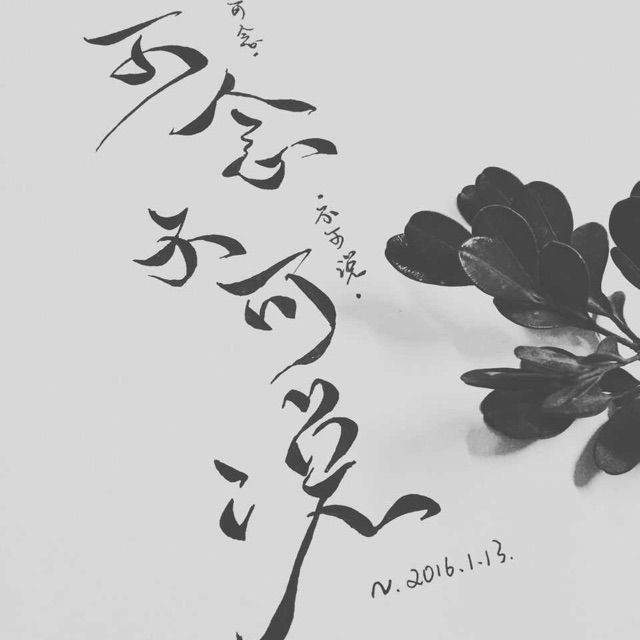 可念
不可说
可念.
·不可说.
N. 2016.1.13.